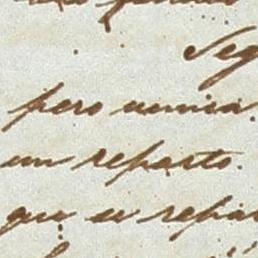 Seg
pero nunca
un reparto.
que se repar